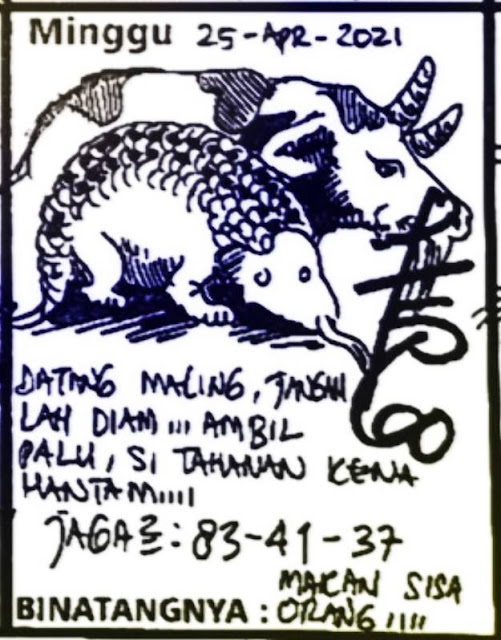 Minggu 25-APR-2021
DATANG MALING, JANGAN
LAH DIAM ,,, AMBIL
PALU, SI TAHANAN KENA
HANTAM,,,,
JAGA2: 83-41-37
MAKAN SISA
BINATANGNYA : ORANG ,,,,